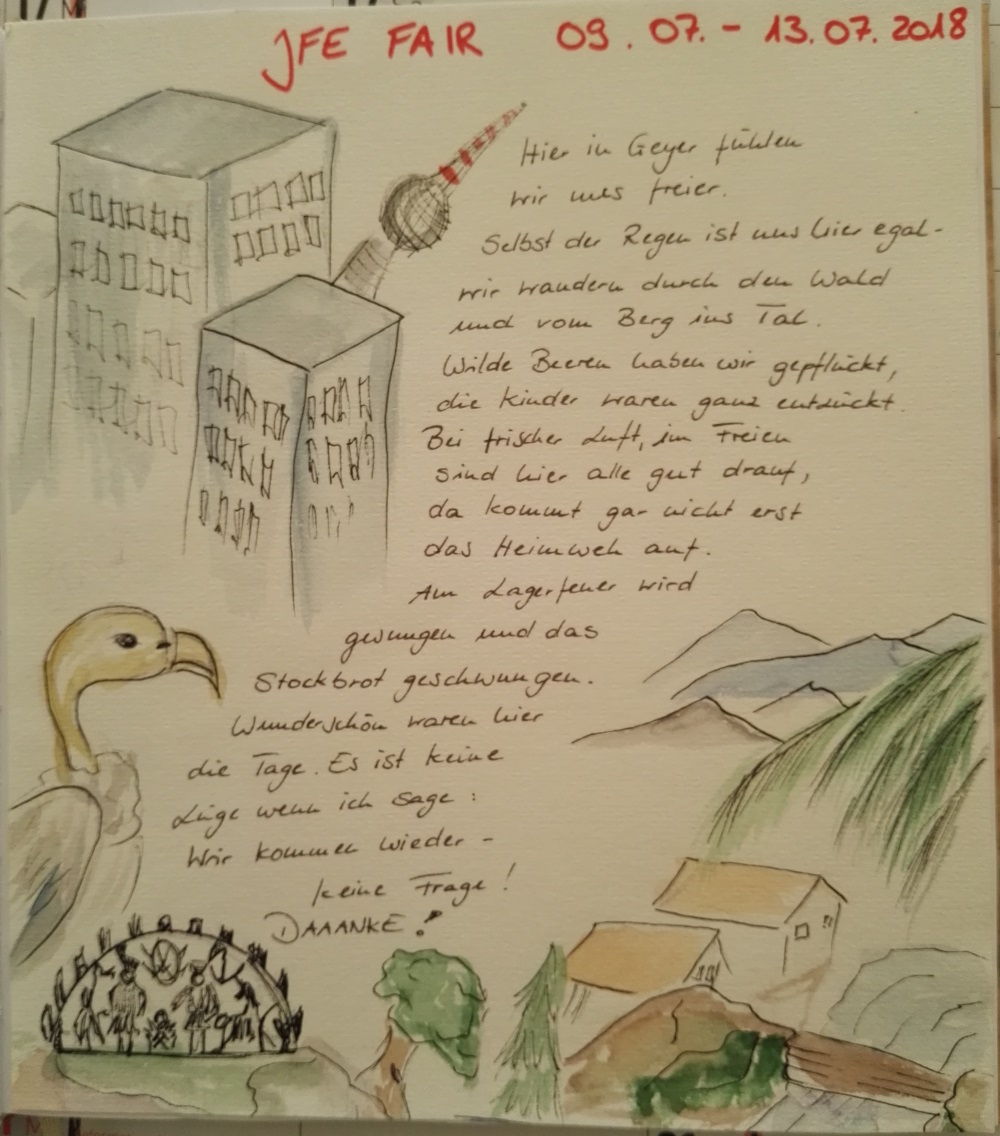 JFE FAIR 09.07. - 13.07.2018
Hier in Geyer fühlen
wir uns freier.
Selbst der Regen ist uns hier egal -
wir wandern durch den Wald
und vom Berg ins Tal.
Wilde Beeren haben wir gepflückt,
die Kinder waren ganz entzückt.
Bei frischer Luft, im Freien
sind hier alle gut drauf,
da kommt gar nicht erst
das Heimweh auf.
Am Lagerfeuer wird
gesungen und das
Stockbrot geschwungen.
Wunderschön waren hier
die Tage. Es ist keine
Lüge wenn ich sage:
Wir kommen wieder -
keine Frage!
DAAANKE!